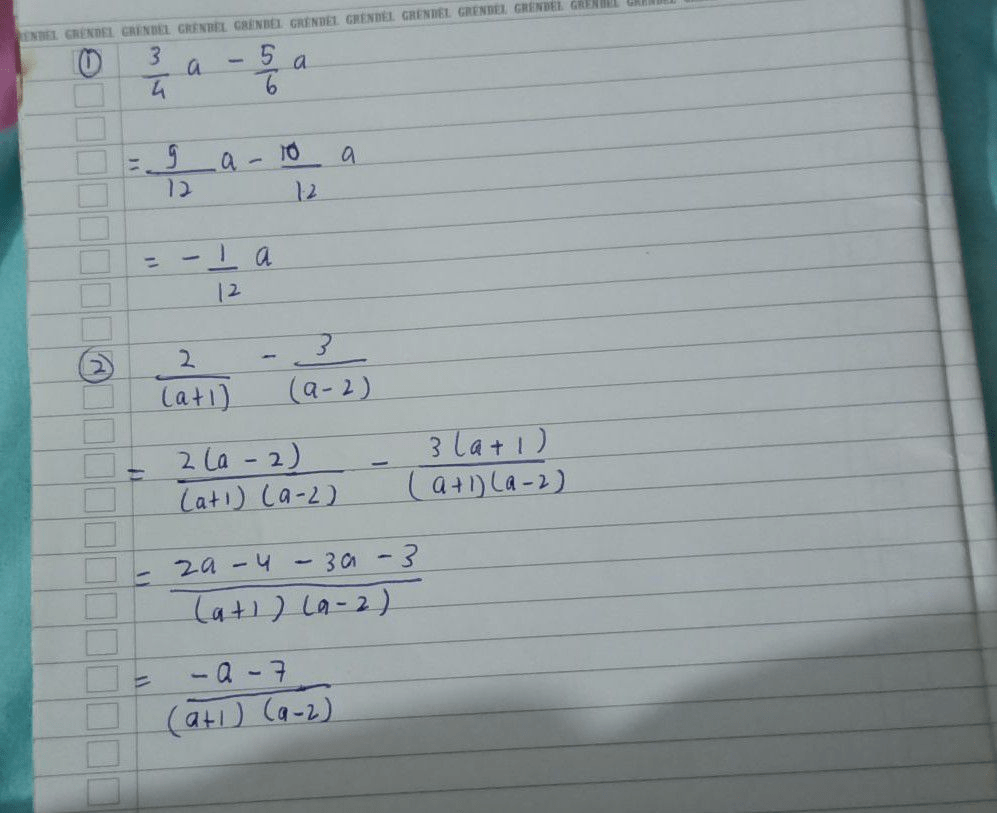 GRENDEL GRENDEL GRENDEL GRENDEL GRENDEL GRENDEL GRENDEL GRENDEL GRENDEL GRENDEL
① 3/4 a - 5/6 a
= 9/12 a - 10/12 a
= - 1/12 a
② 2/(a+1) - 3/(a-2)
= 2(a-2)/(a+1)(a-2) - 3(a+1)/(a+1)(a-2)
= 2a-4-3a-3/(a+1)(a-2)
= -a-7/(a+1)(a-2)